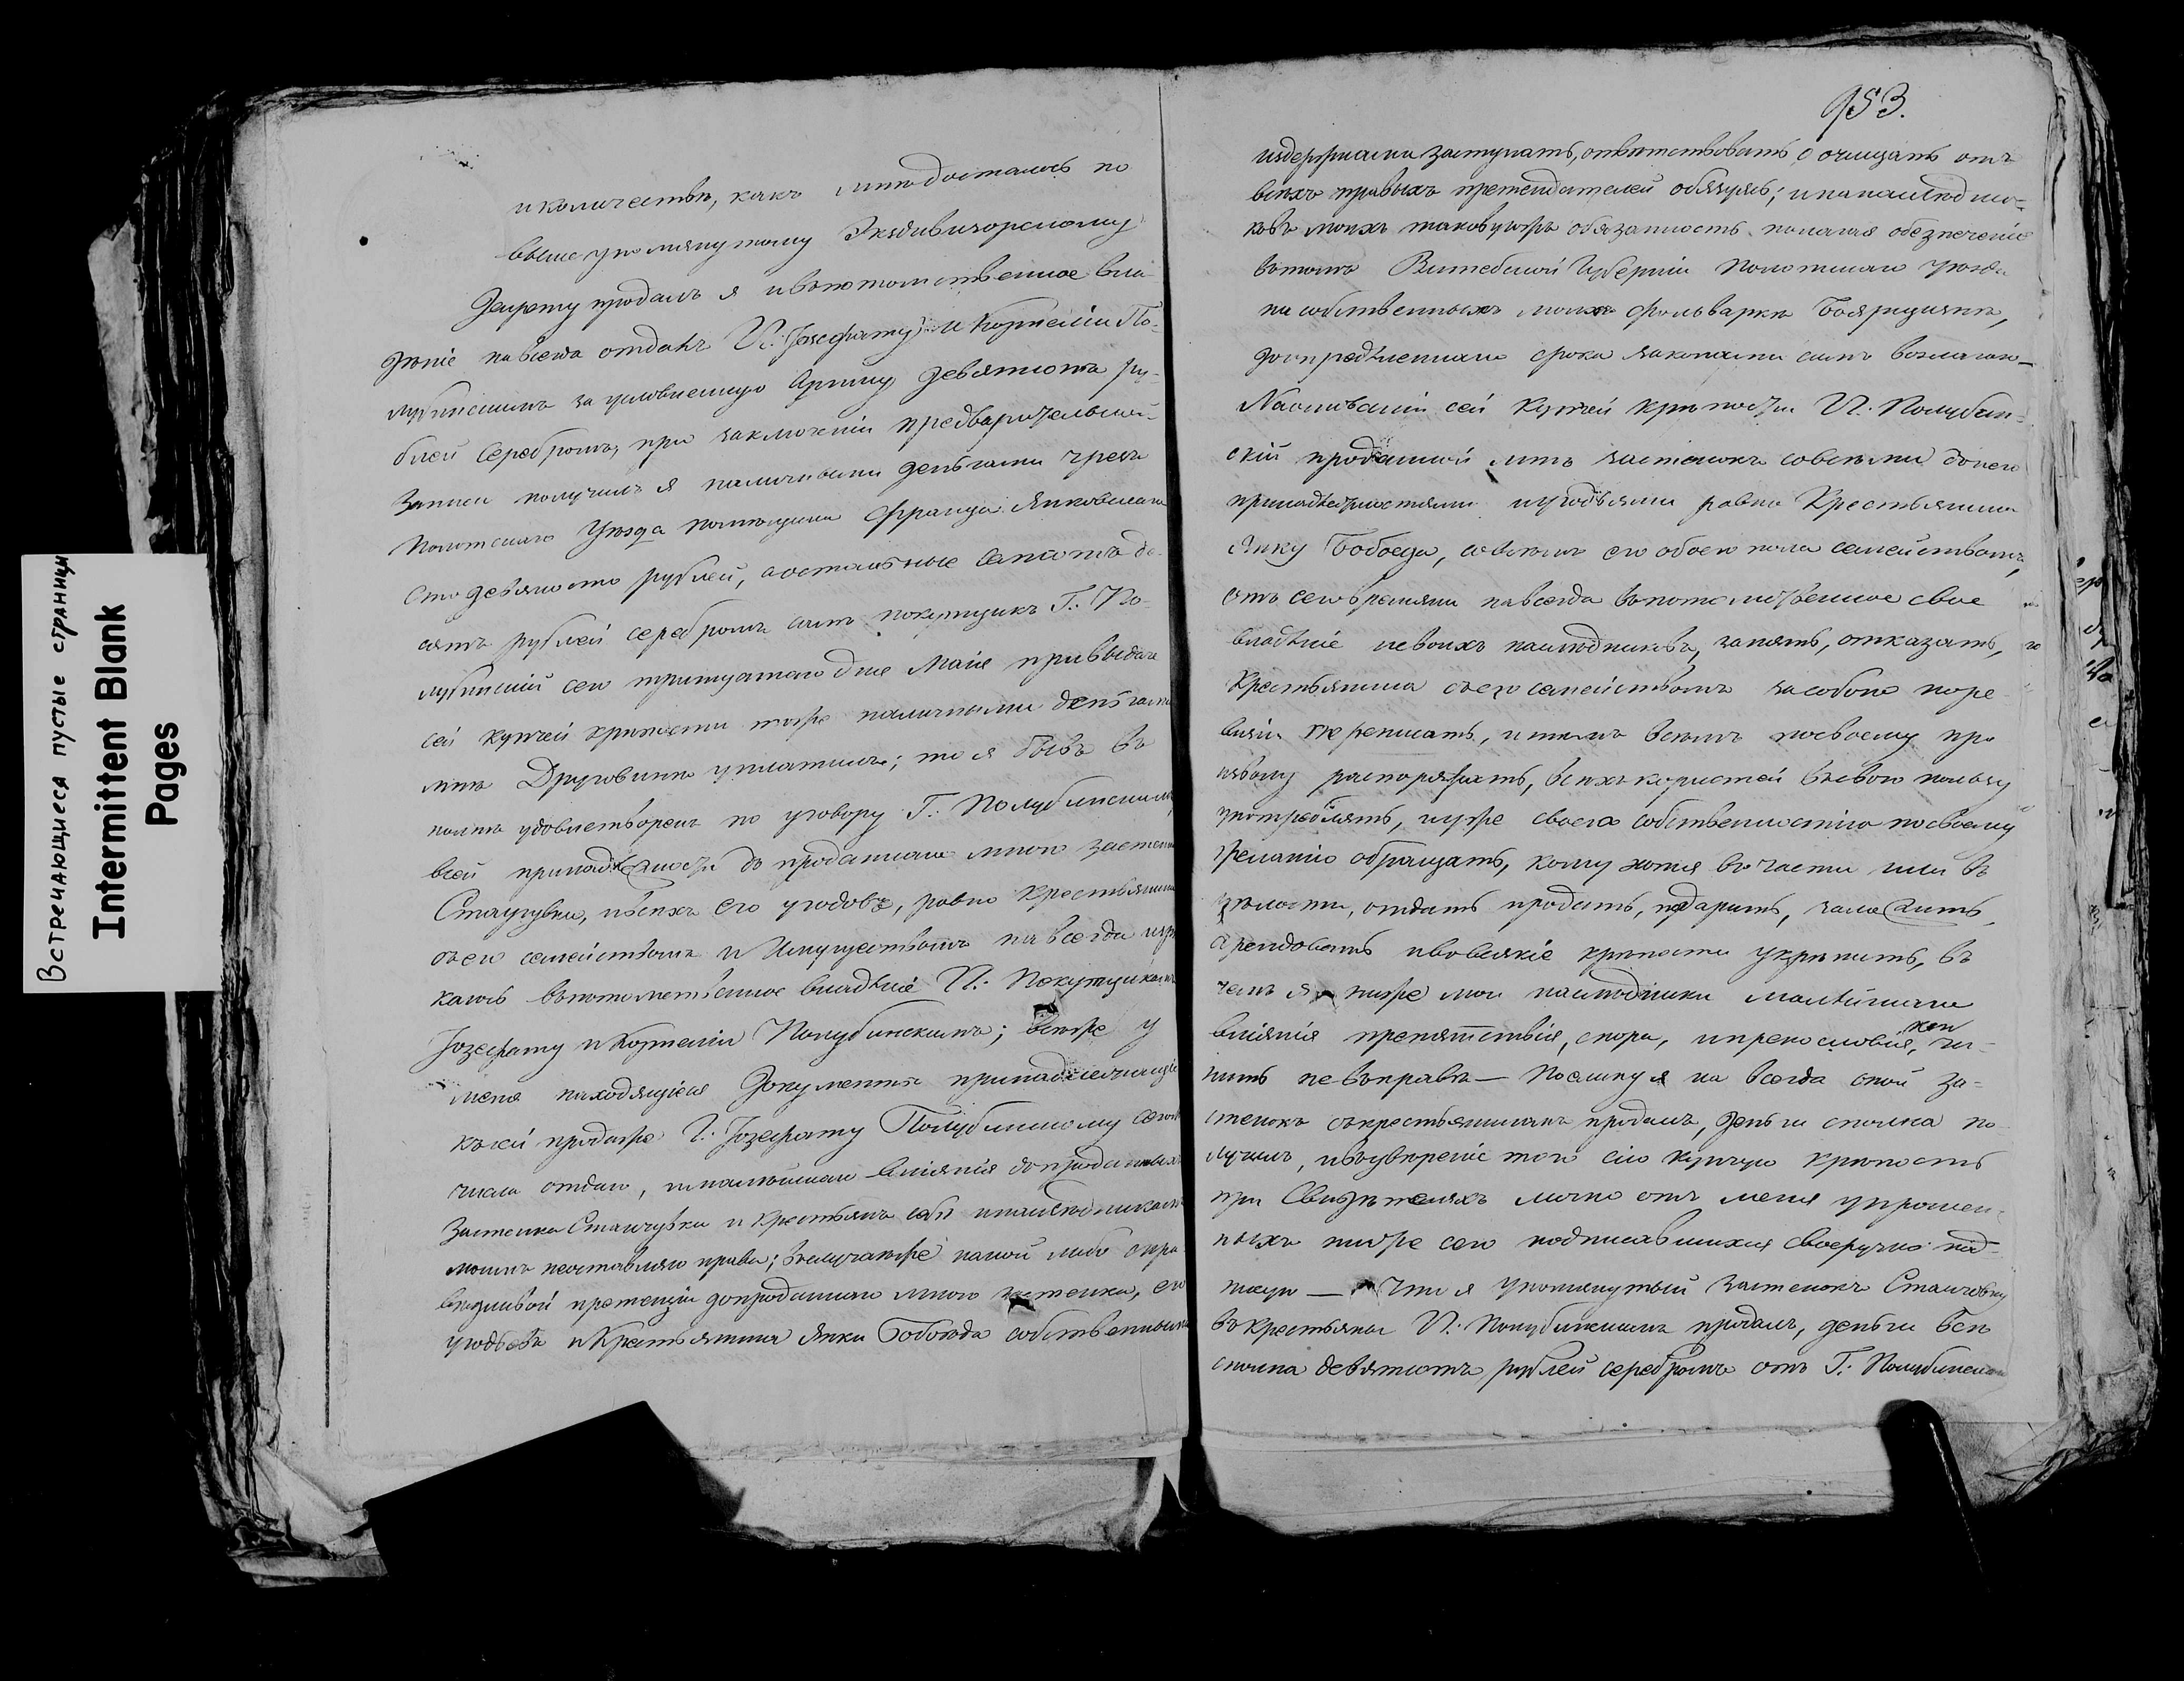 Встречающиеся пустые страницы
Intermittent Blank
Pages
и количестве, какъ мне досталось по
выше упомянутому Экздивизорскому
Декрету продалъ я и въ потомственное вла-
дѣніе на всегда отдалъ Г.Г. Іозефату и Корнеліи По-
лубинскимъ за условленную сумму девятьсотъ ру-
блей серебромъ, при заключеніи предварительной
записи получилъ я наличными деньгами чрезъ
Полотскаго Уѣзда помѣщика Франца Янковскаго
сто девяносто рублей, а остальные семьсотъ де-
сять рублей серебромъ самъ покупщикъ Г. По-
лубинскій сего тридцатаго дня Маія при выдаче
сей купчей крѣпости тоже наличными деньгами
мнѣ уплатилъ; то я бывъ въ
полнѣ удовлетворенъ по уговору Г. Полубинскимъ,
всей принадлежности до проданнаго мною застенка
и всѣхъ его угодьевъ, равно крестьянина
съ его семействомъ и имуществомъ на всегда
въ потомственное владѣніе Г.Г. Покупщикамъ
Іозефату и Корнеліи Полубинскимъ; всѣ же у
меня находящіеся документы принадлежащіе
къ сей продаже Г. Іозефату Полубинскому сего
числа отдаю, и малѣйшаго вліянія до проданныхъ
застенка и крестьянъ себѣ и наслѣдникамъ
моимъ неоставляю права; въ случае же какой либо спра-
ведливой претензіи до проданнаго мною застенка, его
угодьевъ и Крестьянина Янки Бобоѣда собственными
953.
издержками заступать, ответствовать и очищать отъ
всѣхъ правыхъ претендателей обязуясь; и на наслѣдни-
ковъ моихъ таковую же обязанность полагая обезпеченіе
въ томъ Витебской Губерніи Полотскаго уѣзда
на собственныхъ моихъ фольварке Боярщизнѣ,
до опредѣленнаго срока законами симъ возлагаю —
На основаніи сей купчей крѣпости Г.Г. Полубин-
скій проданный имъ застенокъ со всѣми до него
принадлежностями и угодьями равно Крестьянина
Янку Бобоеда, со всѣмъ его обоего пола семействомъ,
отъ сего времяни на всегда въ потомственное свое
владѣніе и своихъ наслѣдниковъ, занять, отказать,
Крестьянина съ его семействомъ за собою по ре-
визіи переписать, и темъ всѣмъ по своему про-
изволу распоряжать, всѣхъ користей въ свою пользу
употреблять, и уже своею собственностію по своему
желанію обращать, кому хотя въ части или въ
цѣлости, отдать продать, подарить, заложить,
арендовать и во всякіе крѣпости укрѣпить, въ
чемъ я ниже мои наслѣдники малѣйшаго
вліянія препятствія, спора, и прекословія, чи-
нить не въ праве — Поелику я на всегда оной за-
стенокъ съ крестьянинамъ продалъ, деньги сполна по-
лучилъ, и въ увѣреніе того сію купчую крѣпость
при Свидѣтеляхъ лично отъ меня упрошен-
ныхъ ниже сего подписавшихся своеручно под-
писую — Что я упомянутый застенокъ
съ крестьяны Г.Г. Полубинскимъ продалъ, деньги всѣ
сполна девятьсотъ рублей серебромъ отъ Г. Полубинскаго